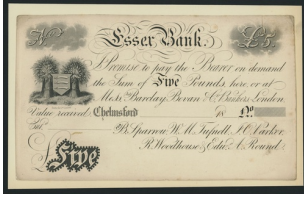 No
Essex Bank
£5
I Promise to pay the Bearer on demand
the Sum of Five Pounds, here, or at
Messrs Barclay, Bevan & Co Bankers London
Value received Chelmsford 18 No
Ent
C. Sparrow, W. M. Tufnell, J. O. Parker,
R. Woodhouse & Edw. A. Round.
£ Five